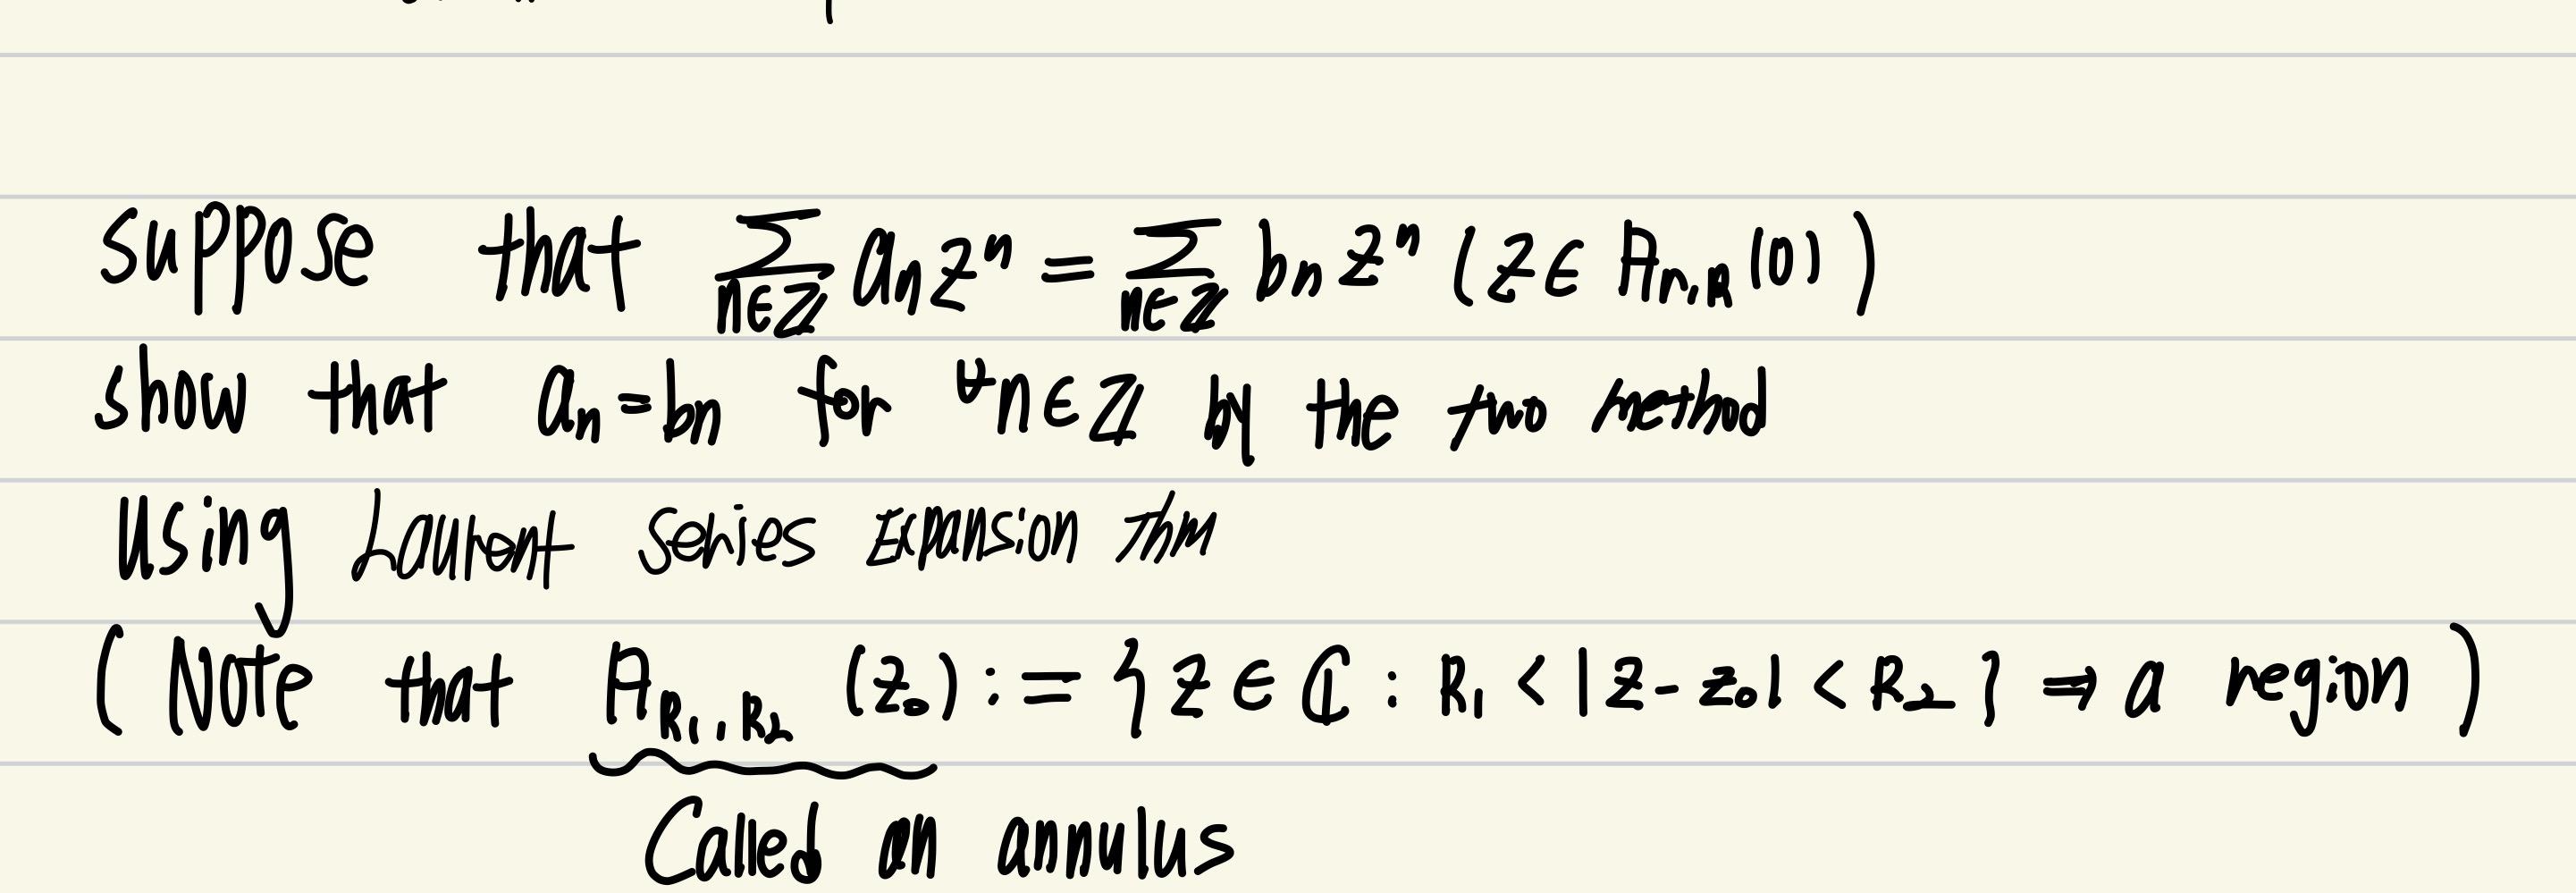 suppose that ∑_{n∈ℤ} a_n z^n = ∑_{n∈ℤ} b_n z^n (z ∈ A_{r,R}(0))
show that a_n = b_n for ∀n∈ℤ by the two method
Using Laurent series Expansion Thm
(Note that A_{R_1,R_2}(z_0) := {z ∈ ℂ : R_1 < |z - z_0| < R_2} ⇒ a region)
Called an annulus